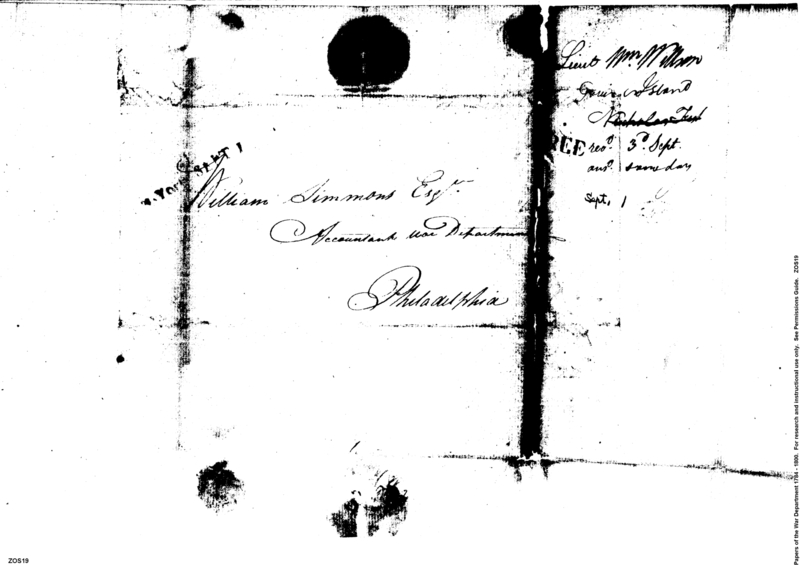 Lieut Wm. Willson
Island
recd. 3d Sept.
ansd. same day
Sept. 1
FREE
N. York Sept 1
William Simmons Esqr.
Accountant War Department
Philadelphia
Papers of the War Department 1784 - 1800. For research and instructional use only. See Permissions Guide. ZOS19
ZOS19